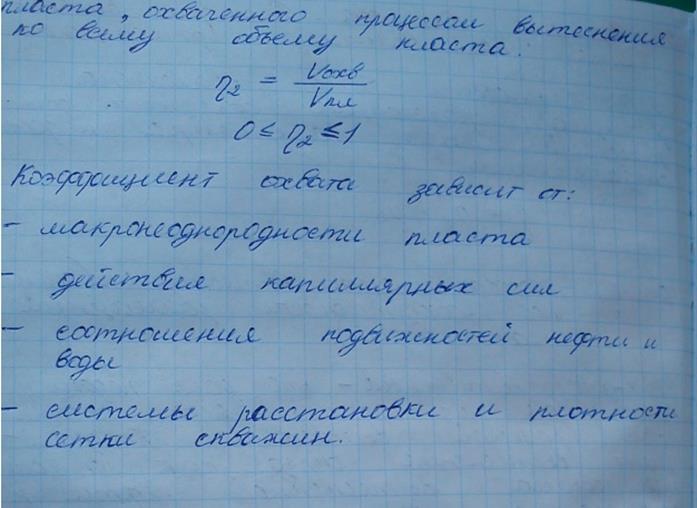 пласта, охваченного процессом вытеснения
по всему объему пласта.
η₂ = Vохв / Vпл
0 ≤ η₂ ≤ 1
Коэффициент охвата зависит от:
- макронеоднородности пласта
- действия капиллярных сил
- соотношения подвижностей нефти и
воды
- системы расстановки и плотности
сетки скважин.